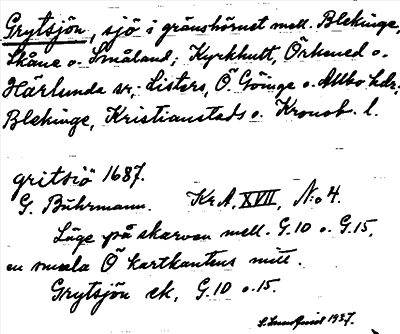 Grytsjön, sjö i gränshörnet mell. Blekinge,
Skåne o. Småland; Kyrkhult, Örkened o.
Härlunda sn; Listers, Ö Göinge o. Allbo hdr;
Blekinge, Kristianstads o. Kronob. l.
gritsiö 1687.
G. Buhrmann. KrA, XVII, N:o 4.
Läge på skarven mell. G.10 o. G.15,
en smula Ö kartkantens mitt.
Grytsjön ek, G.10 o. 15.
1937.